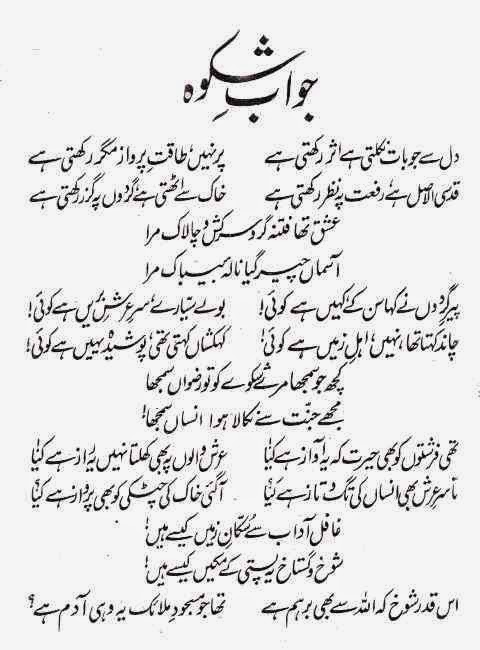 جوابِ شکوہ
دل سے جو بات نکلتی ہے اثر رکھتی ہے پر نہیں، طاقتِ پرواز مگر رکھتی ہے
قدسی الاصل ہے، رفعت پہ نظر رکھتی ہے خاک سے اٹھتی ہے، گردوں پہ گزر رکھتی ہے
عشق تھا فتنہ گر و سرکش و چالاک مرا
آسماں چیر گیا نالۂ بیباک مرا
پیرِ گردوں نے کہا سن کے، کہیں ہے کوئی! بولے سیّارے، سرِ عرشِ بریں ہے کوئی!
چاند کہتا تھا، نہیں، اہلِ زمیں ہے کوئی! کہکشاں کہتی تھی، پوشیدہ یہیں ہے کوئی!
کچھ جو سمجھا مرے شکوے کو تو رضواں سمجھا
مجھے جنّت سے نکالا ہوا انساں سمجھا!
تھی فرشتوں کو بھی حیرت کہ یہ آواز ہے کیا! عرش والوں پہ بھی کھلتا نہیں یہ راز ہے کیا!
تا سرِ عرش بھی انساں کی تگ و تاز ہے کیا؟ آ گئی خاک کی چٹکی کو بھی پرواز ہے کیا؟
غافل آداب سے سُکّانِ زمیں کیسے ہیں!
شوخ و گستاخ یہ پستی کے مکیں کیسے ہیں!
اس قدر شوخ کہ اللہ سے بھی برہم ہے تھا جو مسجودِ ملائک یہ وہی آدم ہے؟